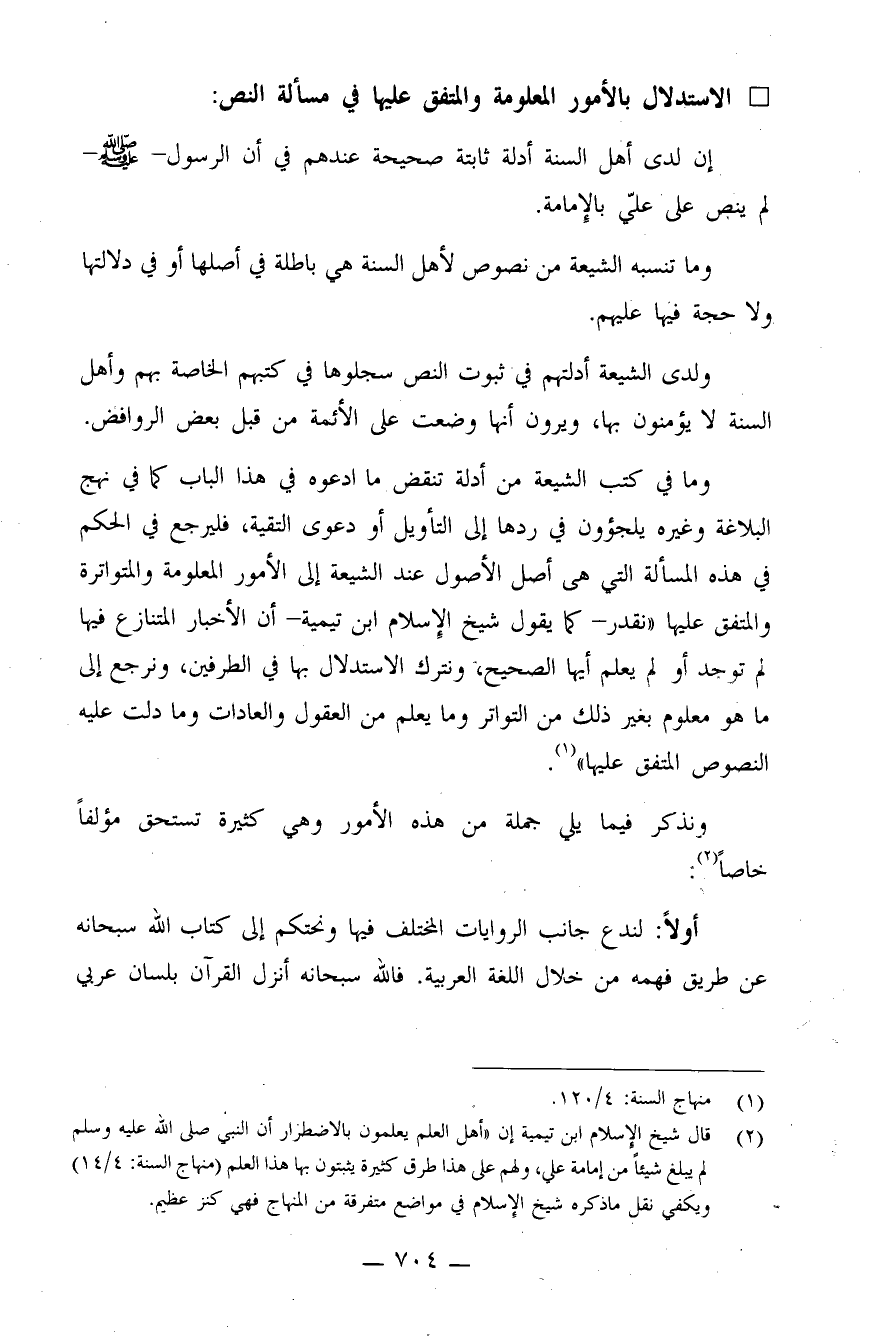 □ الاستدلال بالأمور المعلومة والمتفق عليها في مسألة النص:
إن لدى أهل السنة أدلة ثابتة صحيحة عندهم في أن الرسول – ﷺ –
لم ينص على عليّ بالإمامة.
وما تنسبه الشيعة من نصوص لأهل السنة هي باطلة في أصلها أو في دلالتها
ولا حجة فيها عليهم.
ولدى الشيعة أدلتهم في ثبوت النص سجلوها في كتبهم الخاصة بهم وأهل
السنة لا يؤمنون بها، ويرون أنها وضعت على الأئمة من قبل بعض الروافض.
وما في كتب الشيعة من أدلة تنقض ما ادعوه في هذا الباب كما في نهج
البلاغة وغيره يلجؤون في ردها إلى التأويل أو دعوى التقية، فليرجع في الحكم
في هذه المسألة التي هى أصل الأصول عند الشيعة إلى الأمور المعلومة والمتواترة
والمتفق عليها «نقدر– كما يقول شيخ الإسلام ابن تيمية– أن الأخبار المتنازع فيها
لم توجد أو لم يعلم أيها الصحيح، ونترك الاستدلال بها في الطرفين، ونرجع إلى
ما هو معلوم بغير ذلك من التواتر وما يعلم من العقول والعادات وما دلت عليه
النصوص المتفق عليها»(١).
ونذكر فيما يلي جملة من هذه الأمور وهي كثيرة تستحق مؤلفاً
خاصاً(٢):
أولاً: لندع جانب الروايات المختلف فيها ونحتكم إلى كتاب الله سبحانه
عن طريق فهمه من خلال اللغة العربية. فالله سبحانه أنزل القرآن بلسان عربي
(١) منهاج السنة: ١٢٠/٤.
(٢) قال شيخ الإسلام ابن تيمية إن «أهل العلم يعلمون بالاضطرار أن النبي صلى الله عليه وسلم
لم يبلغ شيئاً من إمامة علي، ولهم على هذا طرق كثيرة يثبتون بها هذا العلم (منهاج السنة: ١٤/٤)
ويكفي نقل ماذكره شيخ الإسلام في مواضع متفرقة من المنهاج فهي كنز عظيم.
— ٧٠٤ —